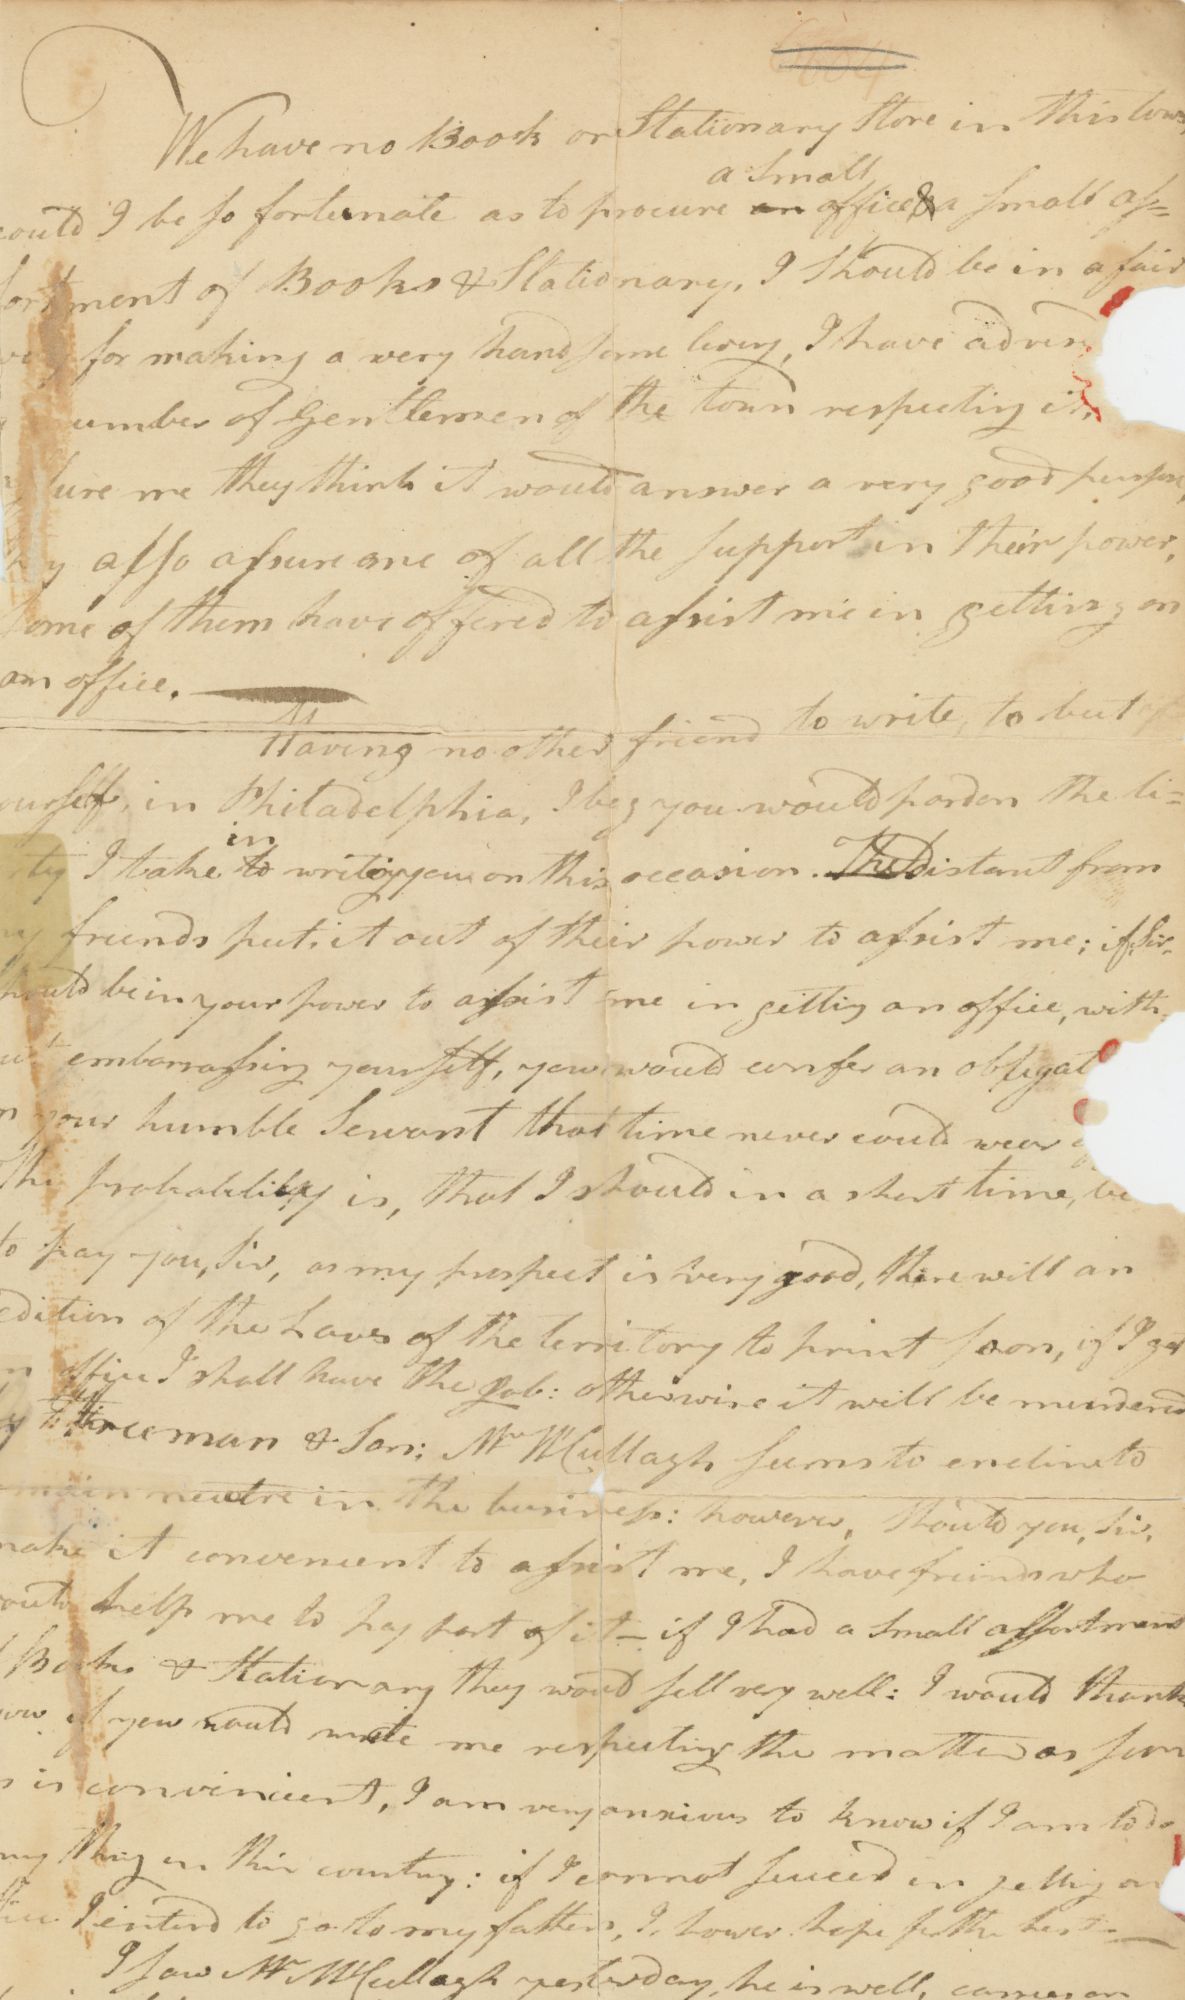 We have no Book or Stationary Store in this town,
could I be so fortunate as to procure an a small office & a small as=
sortment of Books & Stationary, I should be in a fair
way for making a very handsome living, I have advised
number of Gentlemen of the town respecting it,
assure me they think it would answer a very good purpose,
they also assure me of all the support in their power,
some of them have offered to assist me in getting on
an office.
Having no other friend to write, to but y
ourself, in Philadelphia, I beg you would pardon the li=
rty I take to in writing you on this occasion. The Distant from
my friends put it out of their power to assist me; if, Sir,
should be in your power to assist me in gettig an office, with
out embarrassing yourself, you would confer an obligat
on your humble Servant that time never could wear
The probability is, that I should in a short time, be
to pay you, Sir, as my prospect is very good, there will an
edition of the Laws of the territory to print soon, if I get
an office I shall have the Job: otherwise it will be murdered
by Freeman & Son; Mr. McCullagh seems to encline to
main neutre in the business: however, should you, Sir,
make it convenient to assist me, I have friends who
would help me to pay part of it — if I had a small assortment
of Books & Stationary they would sell very well: I would thank
you if you would write me respecting the matter as soon
as is convenient, I am very anxious to know if I am to do
any thing in this country: if I cannot succeed in gettig an
office I intend to go to my fathers, I hower hope for the best —
I saw Mr. McCullagh yesterday, he is well, comes on